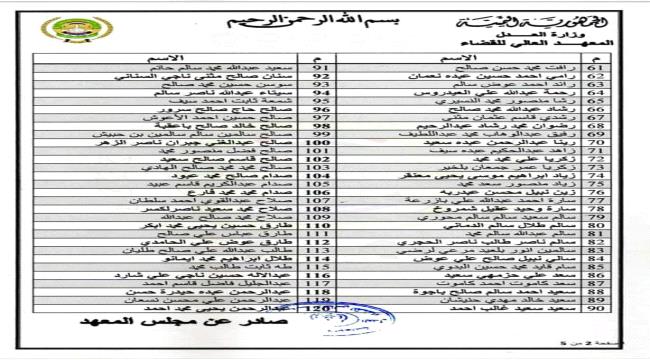 بسم الله الرحمن الرحيم
الجمهورية اليمنية
وزارة العدل
المعهد العالي للقضاء
م الاسم م الاسم
61 رافت محمد حسن صالح 91 سعيد عبدالله محمد سالم حاتم
62 رامي احمد حسين عبده نعمان 92 سنان صالح مثنى ناجي السناني
63 رائد احمد عوض سالم 93 سوسن حسين محمد صالح
64 رحمة عبدالله علي العيدروس 94 سيناء عبدالله ناصر سالم
65 رشا منصور محمد النسيري 95 شمعة ثابت احمد سيف
66 رشاد عبدالله محمد صالح 96 صالح حاج صالح سرور
67 رشدي قاسم عثمان مثنى 97 صالح حسين احمد الأعوش
68 رضوان محمد رشاد عبدالرحيم 98 صالح خالد صالح باعقبة
69 رفيق عبدالوهاب محمد عبداللطيف 99 صالح سالمين سالم سالمين بن حبيش
70 رينا عبدالرحمن عبده سعيد 100 صالح عبدالغني جبران ناصر الزهر
71 زاهد عبدالحكيم عبده سيف 101 صالح فضل منصور محمد
72 زكريا علي محمد محمد 102 صالح قاسم صالح سعيد
73 زكريا عمر جمعان بلخير 103 صالح محمد محمد صالح الهادي
74 زياد ابراهيم موسى يحيى معنقر 104 صدام صالح محمد عبود
75 زياد منصور سعد محمد 105 صدام عبدالكريم قاسم عبيد
76 زين نبيل محسن عيدربه 106 صدام محمد محمد قارع
77 سارة احمد عبدالله علي بازرعة 107 صلاح عبدالقوي احمد سلطان
78 سارة وحيد عقيل شمروخ 108 صلاح محمد سعيد ناصر لكسر
79 سالم سعيد سالم سالم محوري 109 صلاح محمد صالح عبدالله
80 سالم طلال سالم الدماني 110 طارق حسين يحيى محمد ابكر
81 سالم عبدالله سالم محمد 111 طارق عباس علي صالح
82 سالم ناصر طالب ناصر الحجري 112 طارق عوض علي الحامدي
83 سالمين انور بلعيد مرعي لرضي 113 طالب عبدالله علي صالح طلبان
84 سالي نبيل صالح علي عوض 114 طلال ابراهيم محمد ايمانو
85 سام قايد محمد حسين البدوي 115 طه ثابت طالب محمد
86 سعد علي حزمهي سعيد 116 عبدالاله حسين ناجي علي شارد
87 سعد كاموت احمد كاموت 117 عبدالجليل فاضل قاسم احمد
88 سعيد احمد سالم صالح باجوة 118 عبدالرحمن عبده حيدرة حسن
89 سعيد خالد مهدي حنيشان 119 عبدالرحمن علي محسن نسعان
90 سعيد سعيد غالب احمد 120 عبدالرحمن يحيى محمد احمد
صادر عن مجلس المعهد
صفحة 2 من 5